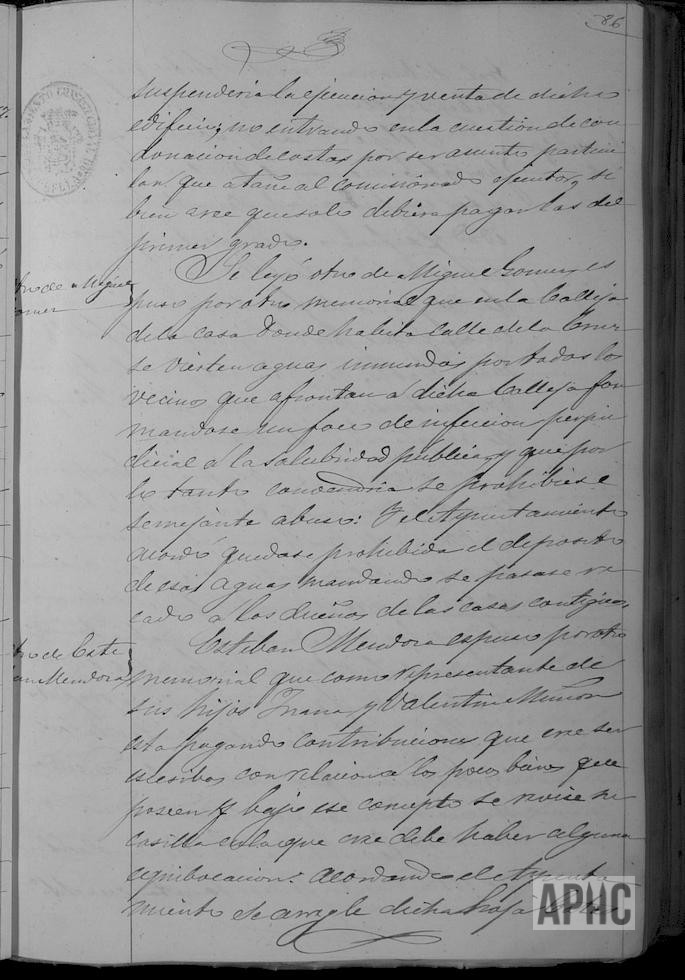 86
suspenderia la ejecucion y venta de dicho
edificio; no entrando en la cuestion de con
donacion de costas por ser asunto particu
lar que atañe al comisionado ejecutor, si
bien cree que solo debiera pagar las del
primer grado.
Otro de Miguel
Gomez
Se leyó otro de Miguel Gomez es
puso por otro memorial que en la Calleja
de la casa donde habita calle de la Cruz
se vierten aguas inmundas por todos los
vecinos que afrontan á dicha Calleja for
mandose un foco de infeccion perju
dicial á la salubridad publica y que por
lo tanto convendria se prohibiese
semejante abuso: Y el Ayuntamiento
acordó quedase prohibida el deposito
de esas aguas mandando se pasase re
cado á los dueños de las casas contiguas.
Otro de Este
ban Mendoza
Esteban Mendoza espuso por otro
memorial que como representante de
sus hijos Juana y Valentin Muñoz
esta pagando contribuciones que cree ser
escesibas con relacion á los pocos bienes que
poseen y bajo ese concepto se revise su
casilla en la que cree debe haber alguna
equibocacion: acordando el Ayunta
miento se arregle dicha hoja
APHC